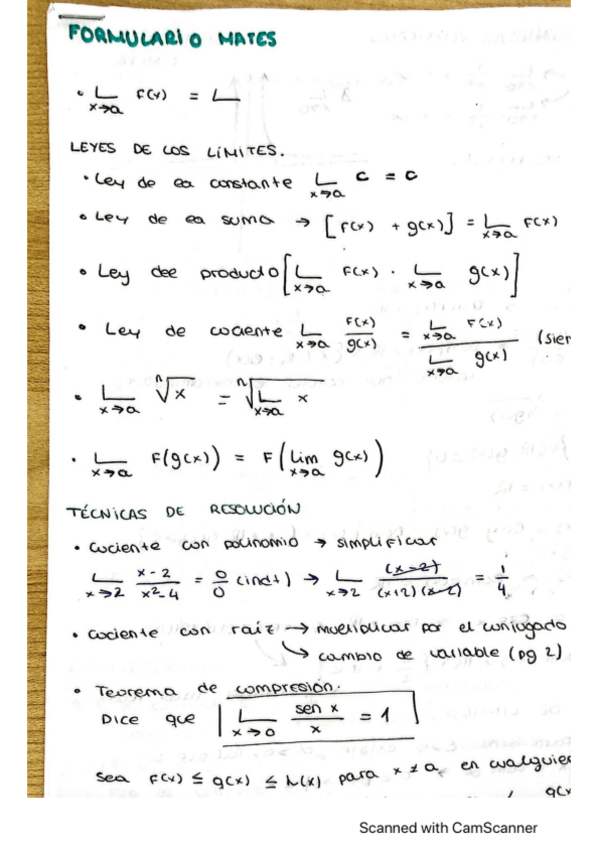 FORMULARIO MATES
• L x→a F(x) = L
LEYES DE LOS LÍMITES.
• Ley de la constante L x→a c = c
• Ley de la suma → [F(x) + g(x)] = L x→a F(x)
• Ley del producto [L x→a F(x) · L x→a g(x)]
• Ley de cociente L x→a F(x)/g(x) = L x→a F(x) / L x→a g(x) (sier
• L x→a ⁿ√x = ⁿ√L x→a x
• L x→a F(g(x)) = F(lim x→a g(x))
TÉCNICAS DE RESOLUCIÓN
• Cociente con polinomio → simplificar
L x→2 x-2/x²-4 = 0/0 (indt) → L x→2 (x-2)/(x+2)(x-2) = 1/4
• Cociente con raíz → multiplicar por el conjugado
↳ cambio de variable (pg 2)
• Teorema de compresión.
Dice que L x→0 sen x/x = 1
Sea F(x) ≤ g(x) ≤ h(x) para x ≠ a, en cualquier
g(x
Scanned with CamScanner